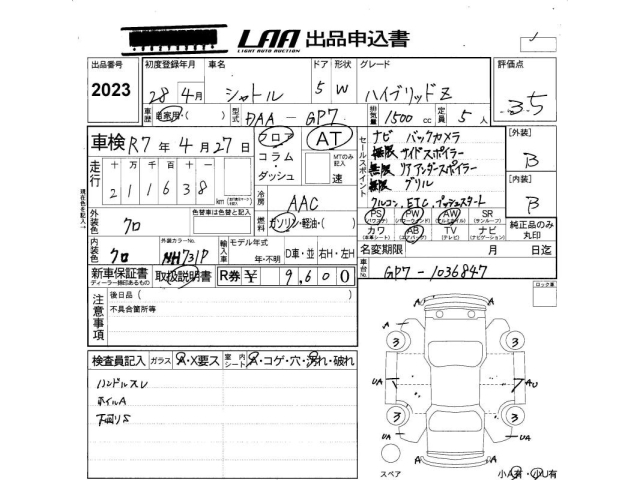 LAA 出品申込書
LIGHT AUTO AUCTION
出品番号 初度登録年月 車名 ドア 形状 グレード 評価点
2023 28年4月 シャトル 5 W ハイブリッドZ 3.5
車歴 自家用・( ) 型式 DAA - GP7 排気量 1500 cc 定員 5人
車検 R7年4月27日 フロア AT セールスポイント ナビ バックカメラ [外装]
コラム・ MTのみ記入 無限 サイドスポイラー B
走行 十 万 千 百 十 ダッシュ 速 無限 リアアンダースポイラー
211638 km 無限 グリル [内装]
冷房 AAC クルコン、ETC、プッシュスタート B
現在色を記入
外装色 クロ 色替車は色替と記入 燃料 ガソリン・軽油・( ) PS PW AW SR
カワ AB TV ナビ 純正品のみ丸印
内装色 クロ 外装カラーNo. NH731P 輸入車 モデル年式 年・不明 D車・並 右H・左H 名変期限 月 日迄
新車保証書 取扱説明書 R券 ¥ 9,600 車台No. GP7-1036847
ディーラー捺印あるもの
注意事項 後日品( ) ロック車
不具合箇所等
検査員記入 ガラス A・X要ス 室内 シート A・コゲ・穴・汚れ・破れ
ハンドルスレ
ホイルA
下回りS
A A
3 3
UA AU
3 3
UA UA
A A
スペア 小A有・小U有